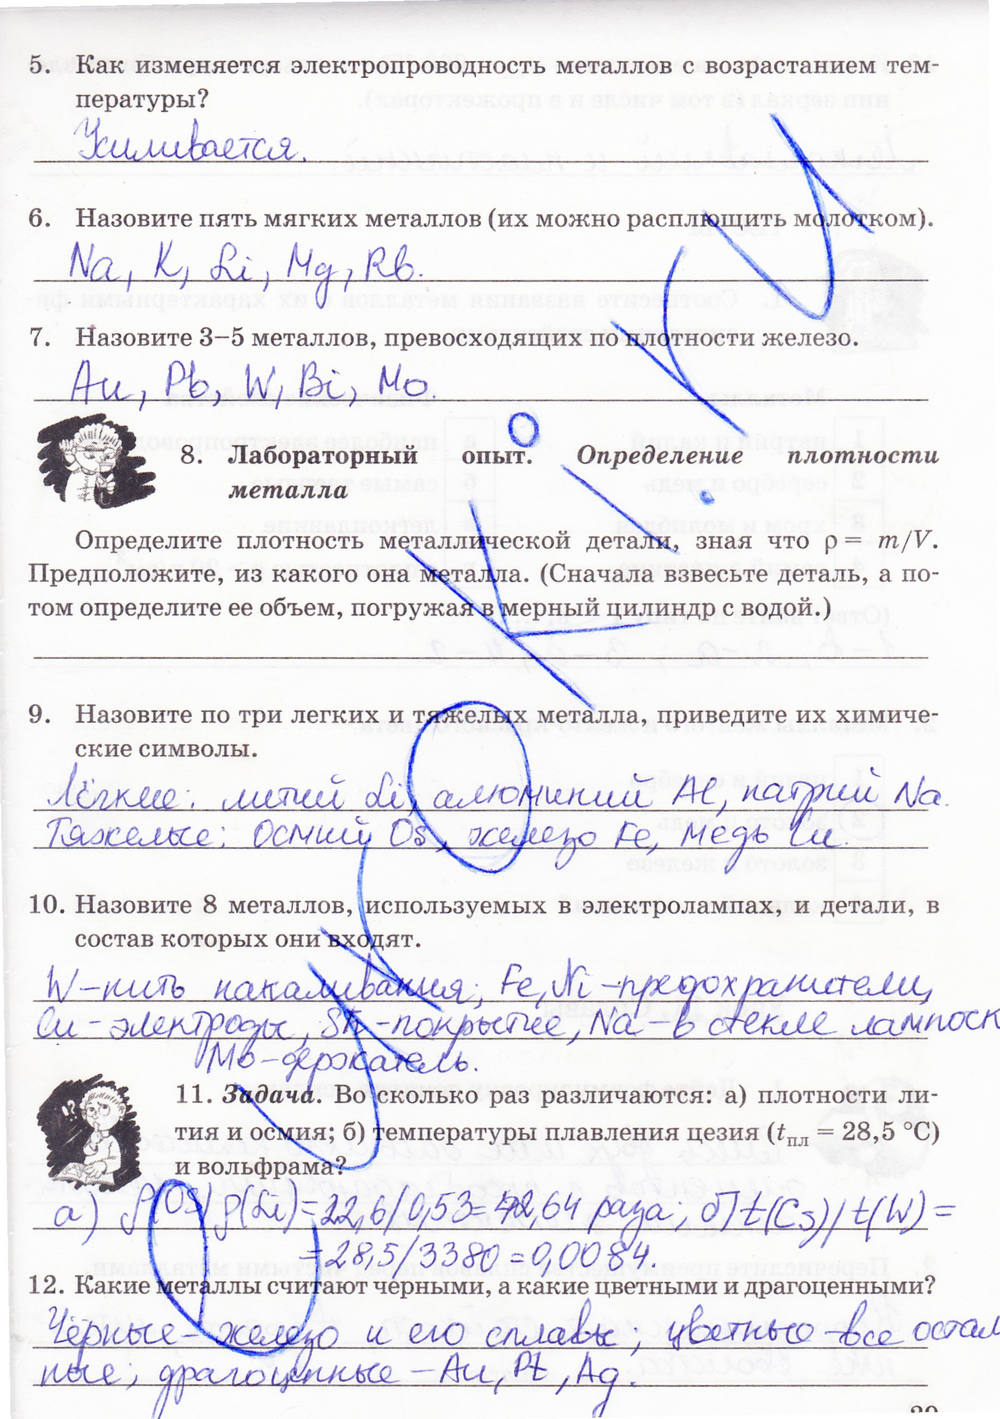 5. Как изменяется электропроводность металлов с возрастанием тем-
пературы?
Усиливается.
6. Назовите пять мягких металлов (их можно расплющить молотком).
Na, K, Li, Mg, Rb.
7. Назовите 3–5 металлов, превосходящих по плотности железо.
Au, Pb, W, Bi, Mo.
8. Лабораторный опыт. Определение плотности
металла
Определите плотность металлической детали, зная что ρ = m/V.
Предположите, из какого она металла. (Сначала взвесьте деталь, а по-
том определите ее объем, погружая в мерный цилиндр с водой.)
9. Назовите по три легких и тяжелых металла, приведите их химиче-
ские символы.
Лёгкие: литий Li, алюминий Al, натрий Na.
Тяжелые: осмий Os, железо Fe, медь Cu.
10. Назовите 8 металлов, используемых в электролампах, и детали, в
состав которых они входят.
W-нить накаливания; Fe, Ni-предохранители,
Cu-электроды, Sn-покрытие, Na-в стекле лампоск
Mo-держатель.
11. Задача. Во сколько раз различаются: а) плотности ли-
тия и осмия; б) температуры плавления цезия (tпл = 28,5 °C)
и вольфрама?
а) ρ(Os)/ρ(Li)=22,6/0,53=42,64 раза; б) t(Cs)/t(W)=
=28,5/3380=0,0084.
12. Какие металлы считают черными, а какие цветными и драгоценными?
Чёрные-железо и его сплавы; цветные-все осталь
ные; драгоценные-Au, Pt, Ag.